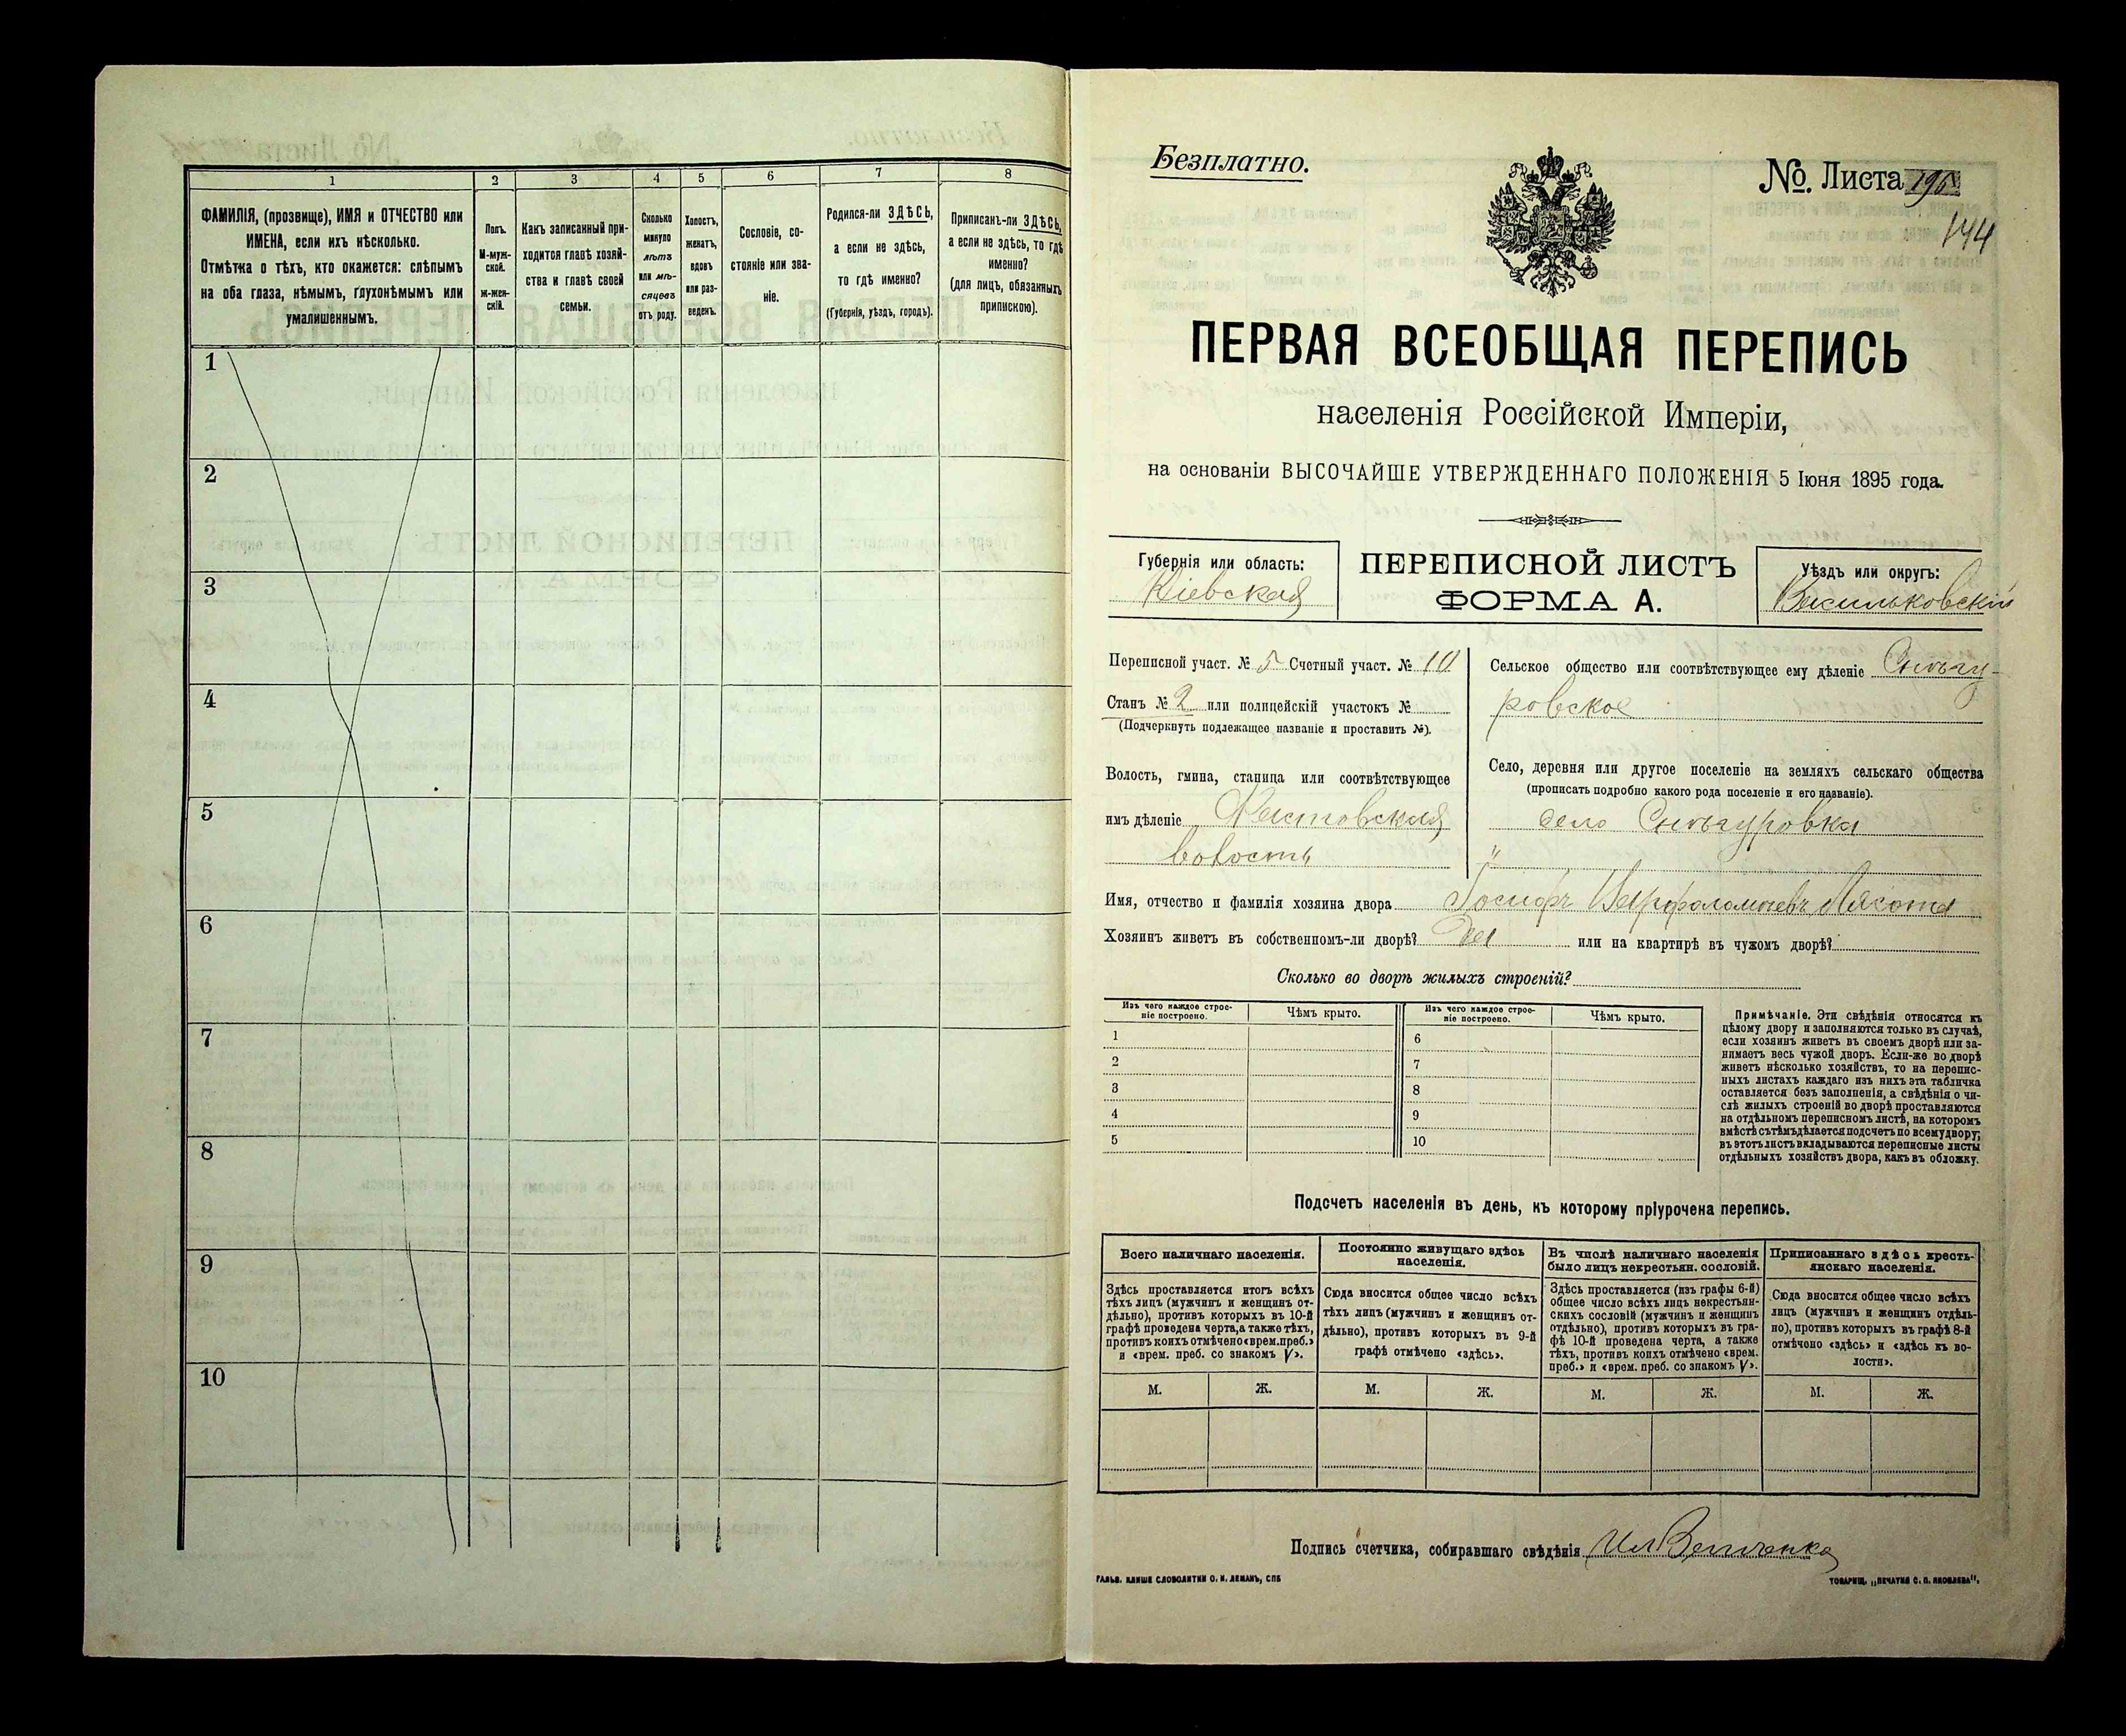 1
2
3
4
5
6
7
8
ФАМИЛІЯ, (прозвище), ИМЯ и ОТЧЕСТВО или
ИМЕНА, если ихъ нѣсколько.
Отмѣтка о тѣхъ, кто окажется: слѣпымъ
на оба глаза, нѣмымъ, глухонѣмымъ или
умалишеннымъ.
Полъ.
М-муж-
ской.
ж-жен-
скій.
Какъ записанный при-
ходится главѣ хозяй-
ства и главѣ своей
семьи.
Сколько
минуло
лѣтъ
или мѣ-
сяцевъ
отъ роду.
Холостъ,
женатъ,
вдовъ
или раз-
веденъ.
Сословіе, со-
стояніе или зва-
ніе.
Родился-ли ЗДѢСЬ,
а если не здѣсь,
то гдѣ именно?
(Губернія, уѣздъ, городъ).
Приписанъ-ли ЗДѢСЬ,
а если не здѣсь, то гдѣ
именно?
(для лицъ, обязанныхъ
припискою).
1
2
3
4
5
6
7
8
9
10
Безплатно.
№. Листа
144
ПЕРВАЯ ВСЕОБЩАЯ ПЕРЕПИСЬ
населенія Россійской Имперіи,
на основаніи ВЫСОЧАЙШЕ УТВЕРЖДЕННАГО ПОЛОЖЕНІЯ 5 Іюня 1895 года.
Губернія или область:
Кіевская
ПЕРЕПИСНОЙ ЛИСТЪ
ФОРМА А.
Уѣздъ или округъ:
Васильковскій
Переписной участ. № 5 Счетный участ. № 10
Станъ № 2 или полицейскій участокъ №
(Подчеркнуть подлежащее названіе и проставить №).
Волость, гмина, станица или соотвѣтствующее
имъ дѣленіе Фастовская
волость
Сельское общество или соотвѣтствующее ему дѣленіе Снѣгу-
ровское
Село, деревня или другое поселеніе на земляхъ сельскаго общества
(прописать подробно какого рода поселеніе и его названіе).
село Снѣгуровка
"
Имя, отчество и фамилія хозяина двора Іосифъ Варфоломѣевъ Лясота
Хозяинъ живетъ въ собственномъ-ли дворѣ? Да или на квартирѣ въ чужомъ дворѣ?
Сколько во дворѣ жилыхъ строеній?
Изъ чего каждое строе-
ніе построено.
Чѣмъ крыто.
Изъ чего каждое строе-
ніе построено.
Чѣмъ крыто.
1
2
3
4
5
6
7
8
9
10
Примѣчаніе. Эти свѣдѣнія относятся къ
цѣлому двору и заполняются только въ случаѣ,
если хозяинъ живетъ въ своемъ дворѣ или за-
нимаетъ весь чужой дворъ. Если-же во дворѣ
живетъ нѣсколько хозяйствъ, то на перепис-
ныхъ листахъ каждаго изъ нихъ эта табличка
оставляется безъ заполненія, а свѣдѣнія о чи-
слѣ жилыхъ строеній во дворѣ проставляются
на отдѣльномъ переписномъ листѣ, на которомъ
вмѣстѣ съ тѣмъ дѣлается подсчетъ по всему двору;
въ этотъ листъ вкладываются переписные листы
отдѣльныхъ хозяйствъ двора, какъ въ обложку.
Подсчетъ населенія въ день, къ которому пріурочена перепись.
Всего наличнаго населенія.
Здѣсь проставляется итогъ всѣхъ
тѣхъ лицъ (мужчинъ и женщинъ от-
дѣльно), противъ которыхъ въ 10-й
графѣ проведена черта, а также тѣхъ,
противъ коихъ отмѣчено «врем. преб.»
и «врем. преб. со знакомъ V».
Постоянно живущаго здѣсь
населенія.
Сюда вносится общее число всѣхъ
тѣхъ лицъ (мужчинъ и женщинъ от-
дѣльно), противъ которыхъ въ 9-й
графѣ отмѣчено «здѣсь».
Въ числѣ наличнаго населенія
было лицъ некрестьян. сословій.
Здѣсь проставляется (изъ графы 6-й)
общее число всѣхъ лицъ некрестьян-
скихъ сословій (мужчинъ и женщинъ
отдѣльно), противъ которыхъ въ гра-
фѣ 10-й проведена черта, а также
тѣхъ, противъ коихъ отмѣчено «врем.
преб.» и «врем. преб. со знакомъ V».
Приписаннаго здѣсь кресть-
янскаго населенія.
Сюда вносится общее число всѣхъ
лицъ (мужчинъ и женщинъ отдѣль-
но), противъ которыхъ въ графѣ 8-й
отмѣчено «здѣсь» и «здѣсь къ во-
лости».
М. Ж. М. Ж. М. Ж. М. Ж.
Подпись счетчика, собиравшаго свѣдѣнія
ГАЛЬВ. КЛИШЕ СЛОВОЛИТНИ О. И. ЛЕМАНЪ, СПБ
ТОВАРИЩ. „ПЕЧАТНЯ С. П. ЯКОВЛЕВА",